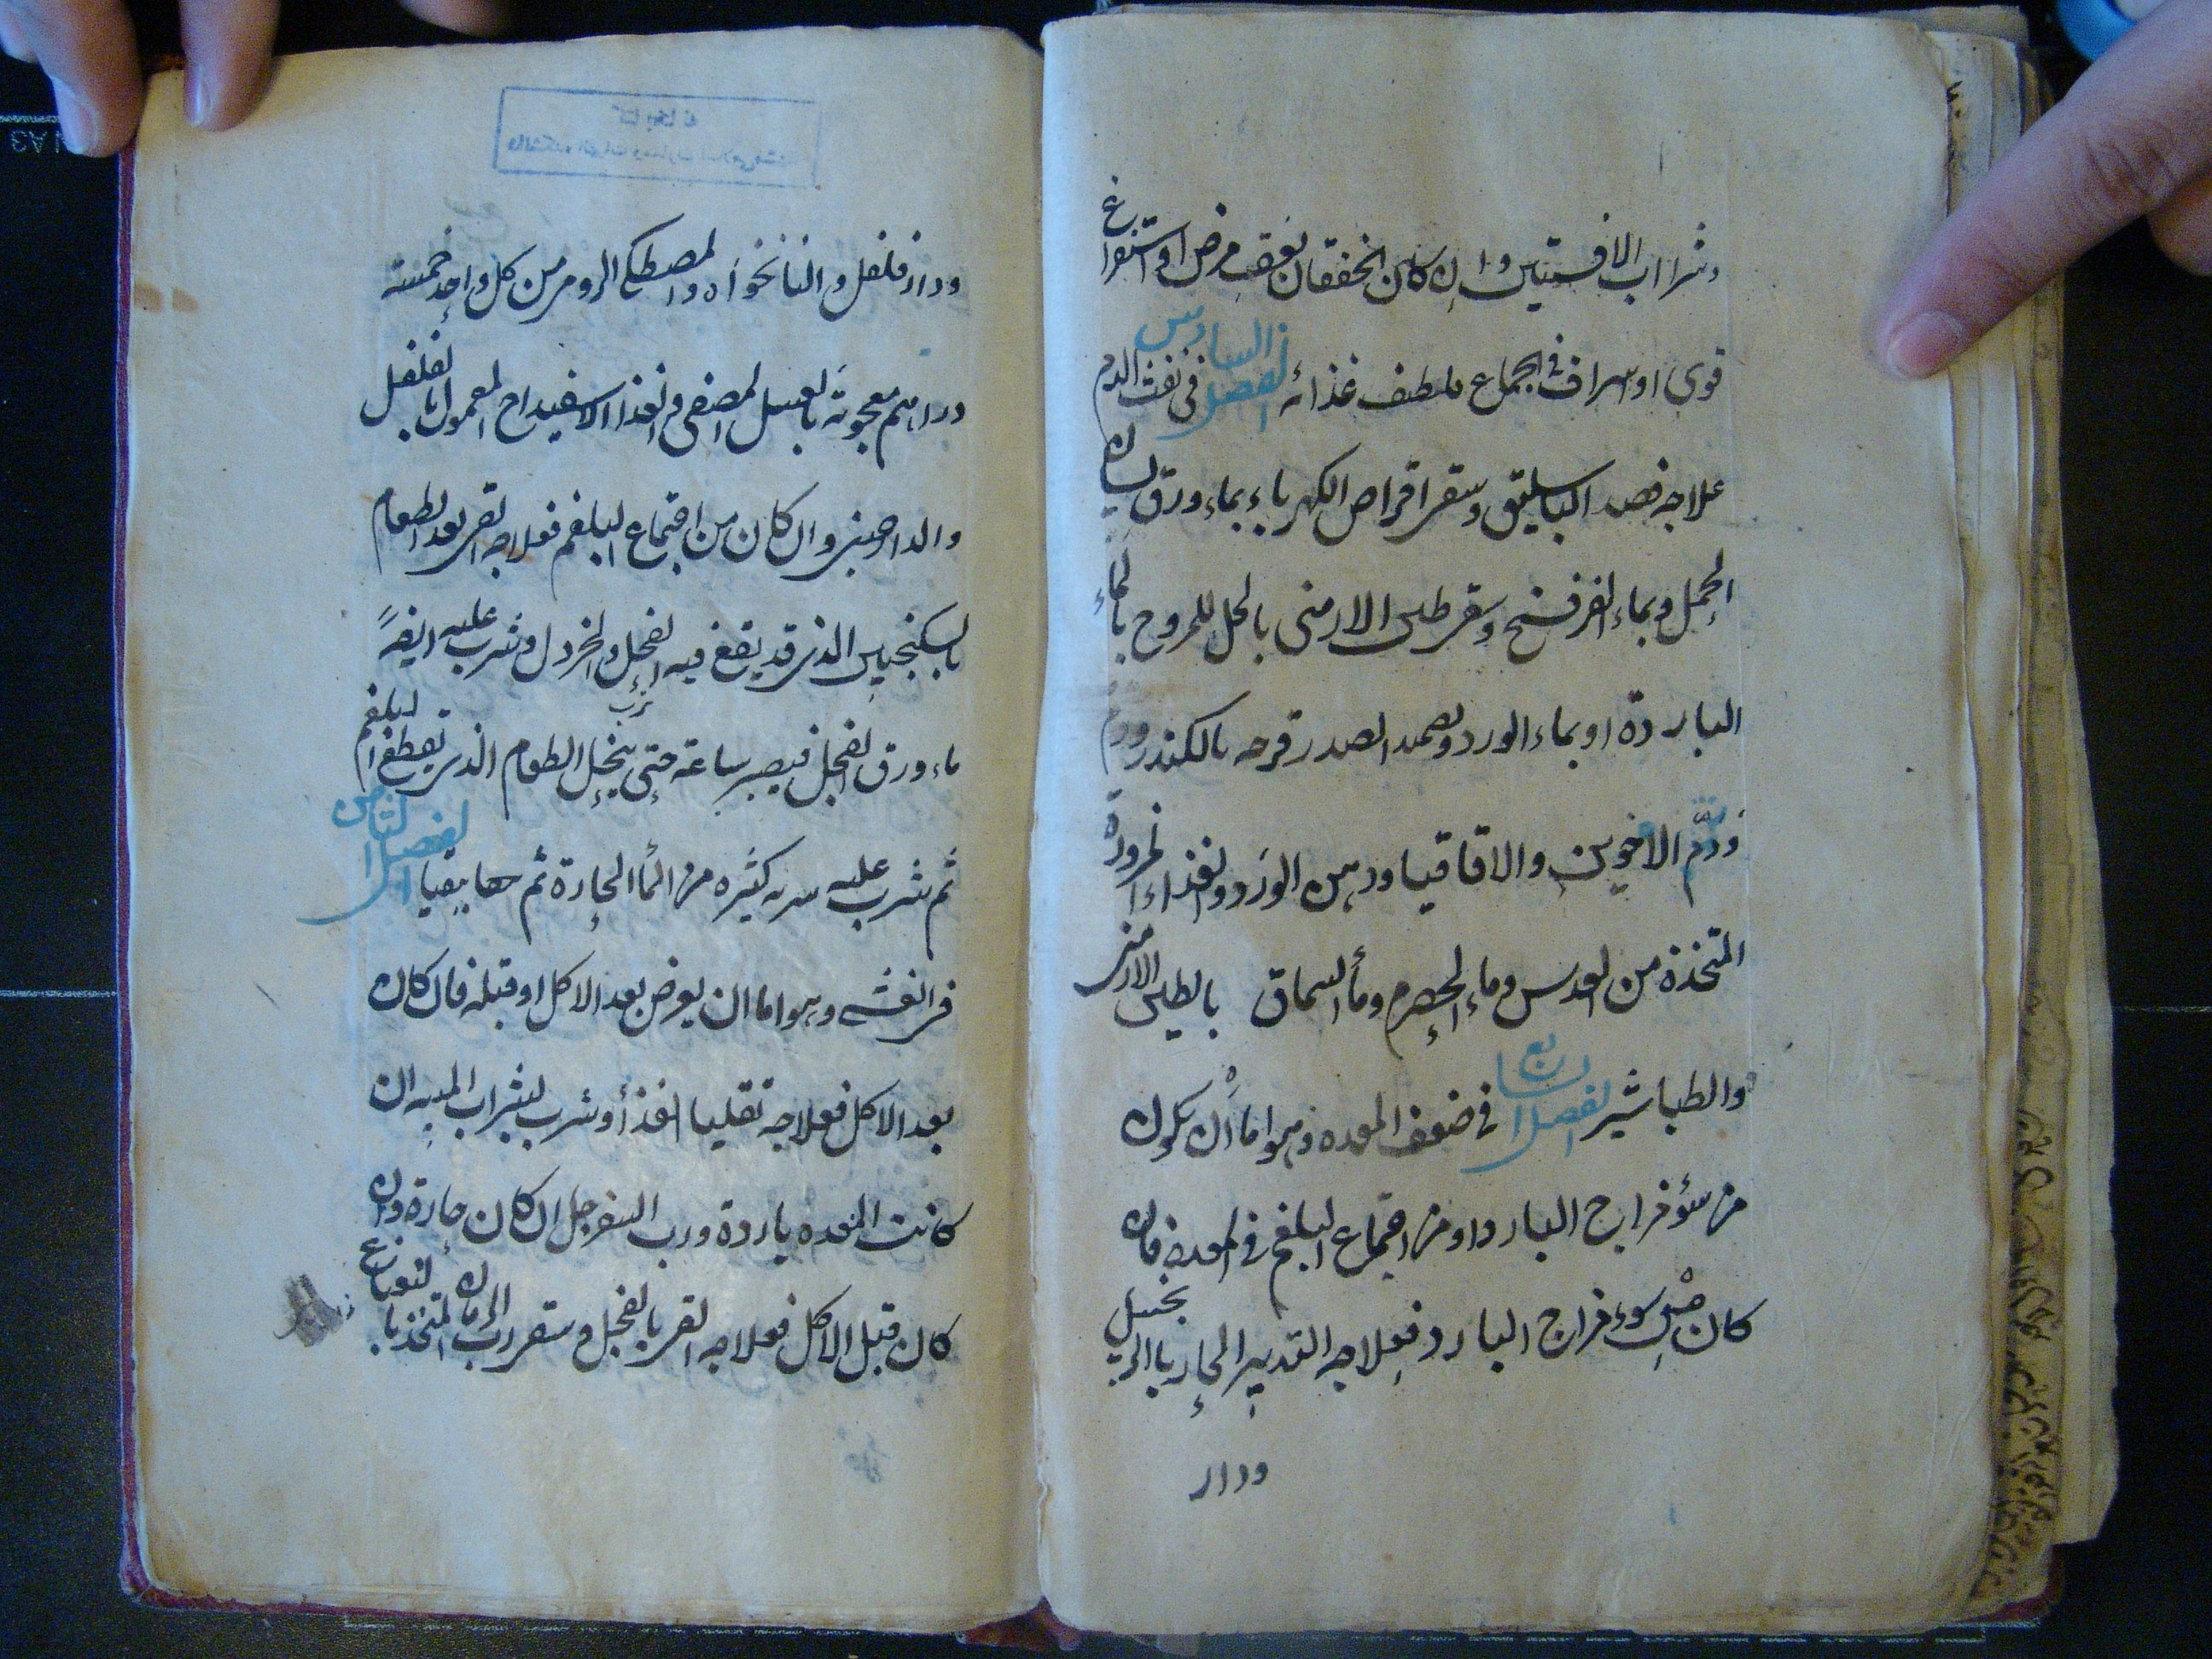 وشراب الافسنتين وان كان الخفقان بعقب مرض او استفراغ
قوى او اسراف فى الجماع ملطف غذائه الفصل السادس فى نفث الدم
علاجه فصد الباسليق وسقى اقراص الكهرباء بماء ورق لسان
الحمل وبماء الفرفخ وسقى طين الارمنى بالخل الممزوج بالماء
الباردة او بماء الورد وتصميد الصدر قرحه بالكندر ودم
ودم الاخوين والاقاقيا ودهن الورد والغذاء المزورة
المتخذة من العدس وماء الحصرم وماء السماق بالطين الارمنى
والطباشير الفصل السابع فى ضعف المعده وهو اما ان يكون
من سؤ مزاج البارد او من اجتماع البلغم فى المعدة فان
كان من سوء مزاج البارد فعلاجه التدبير الحار بالزنجبيل
ودار
ودار فلفل والنانخواه والمصطكى الرومى من كل واحد خمسة
دراهم معجونة بالعسل المصفى والغذا الاسفيداج المعمول بالفلفل
والدارصينى وان كان من اجتماع البلغم فعلاجه القى بعد الطعام
بالسكنجبين الذى قد يقع فيه الفجل والخردل وشرب عليه ايضاً
ترب
ماء ورق الفجل فيصبر ساعة حتى ينحل الطعام الذى تقطع البلغم
ثم شرب عليه كثيره من الماء الحارة ثم يتقيا الفصل الثامن
فى الغشى وهو اما ان يعرض بعد الاكل او قبله فان كان
بعد الاكل فعلاجه تقليل الغذا وشرب الشراب الميبه ان
كانت المعده باردة ورب السفرجل ان كان حارة وان
كان قبل الاكل فعلاجه القى بالفجل وسقى رب الرمان المتخذ بالنعناع